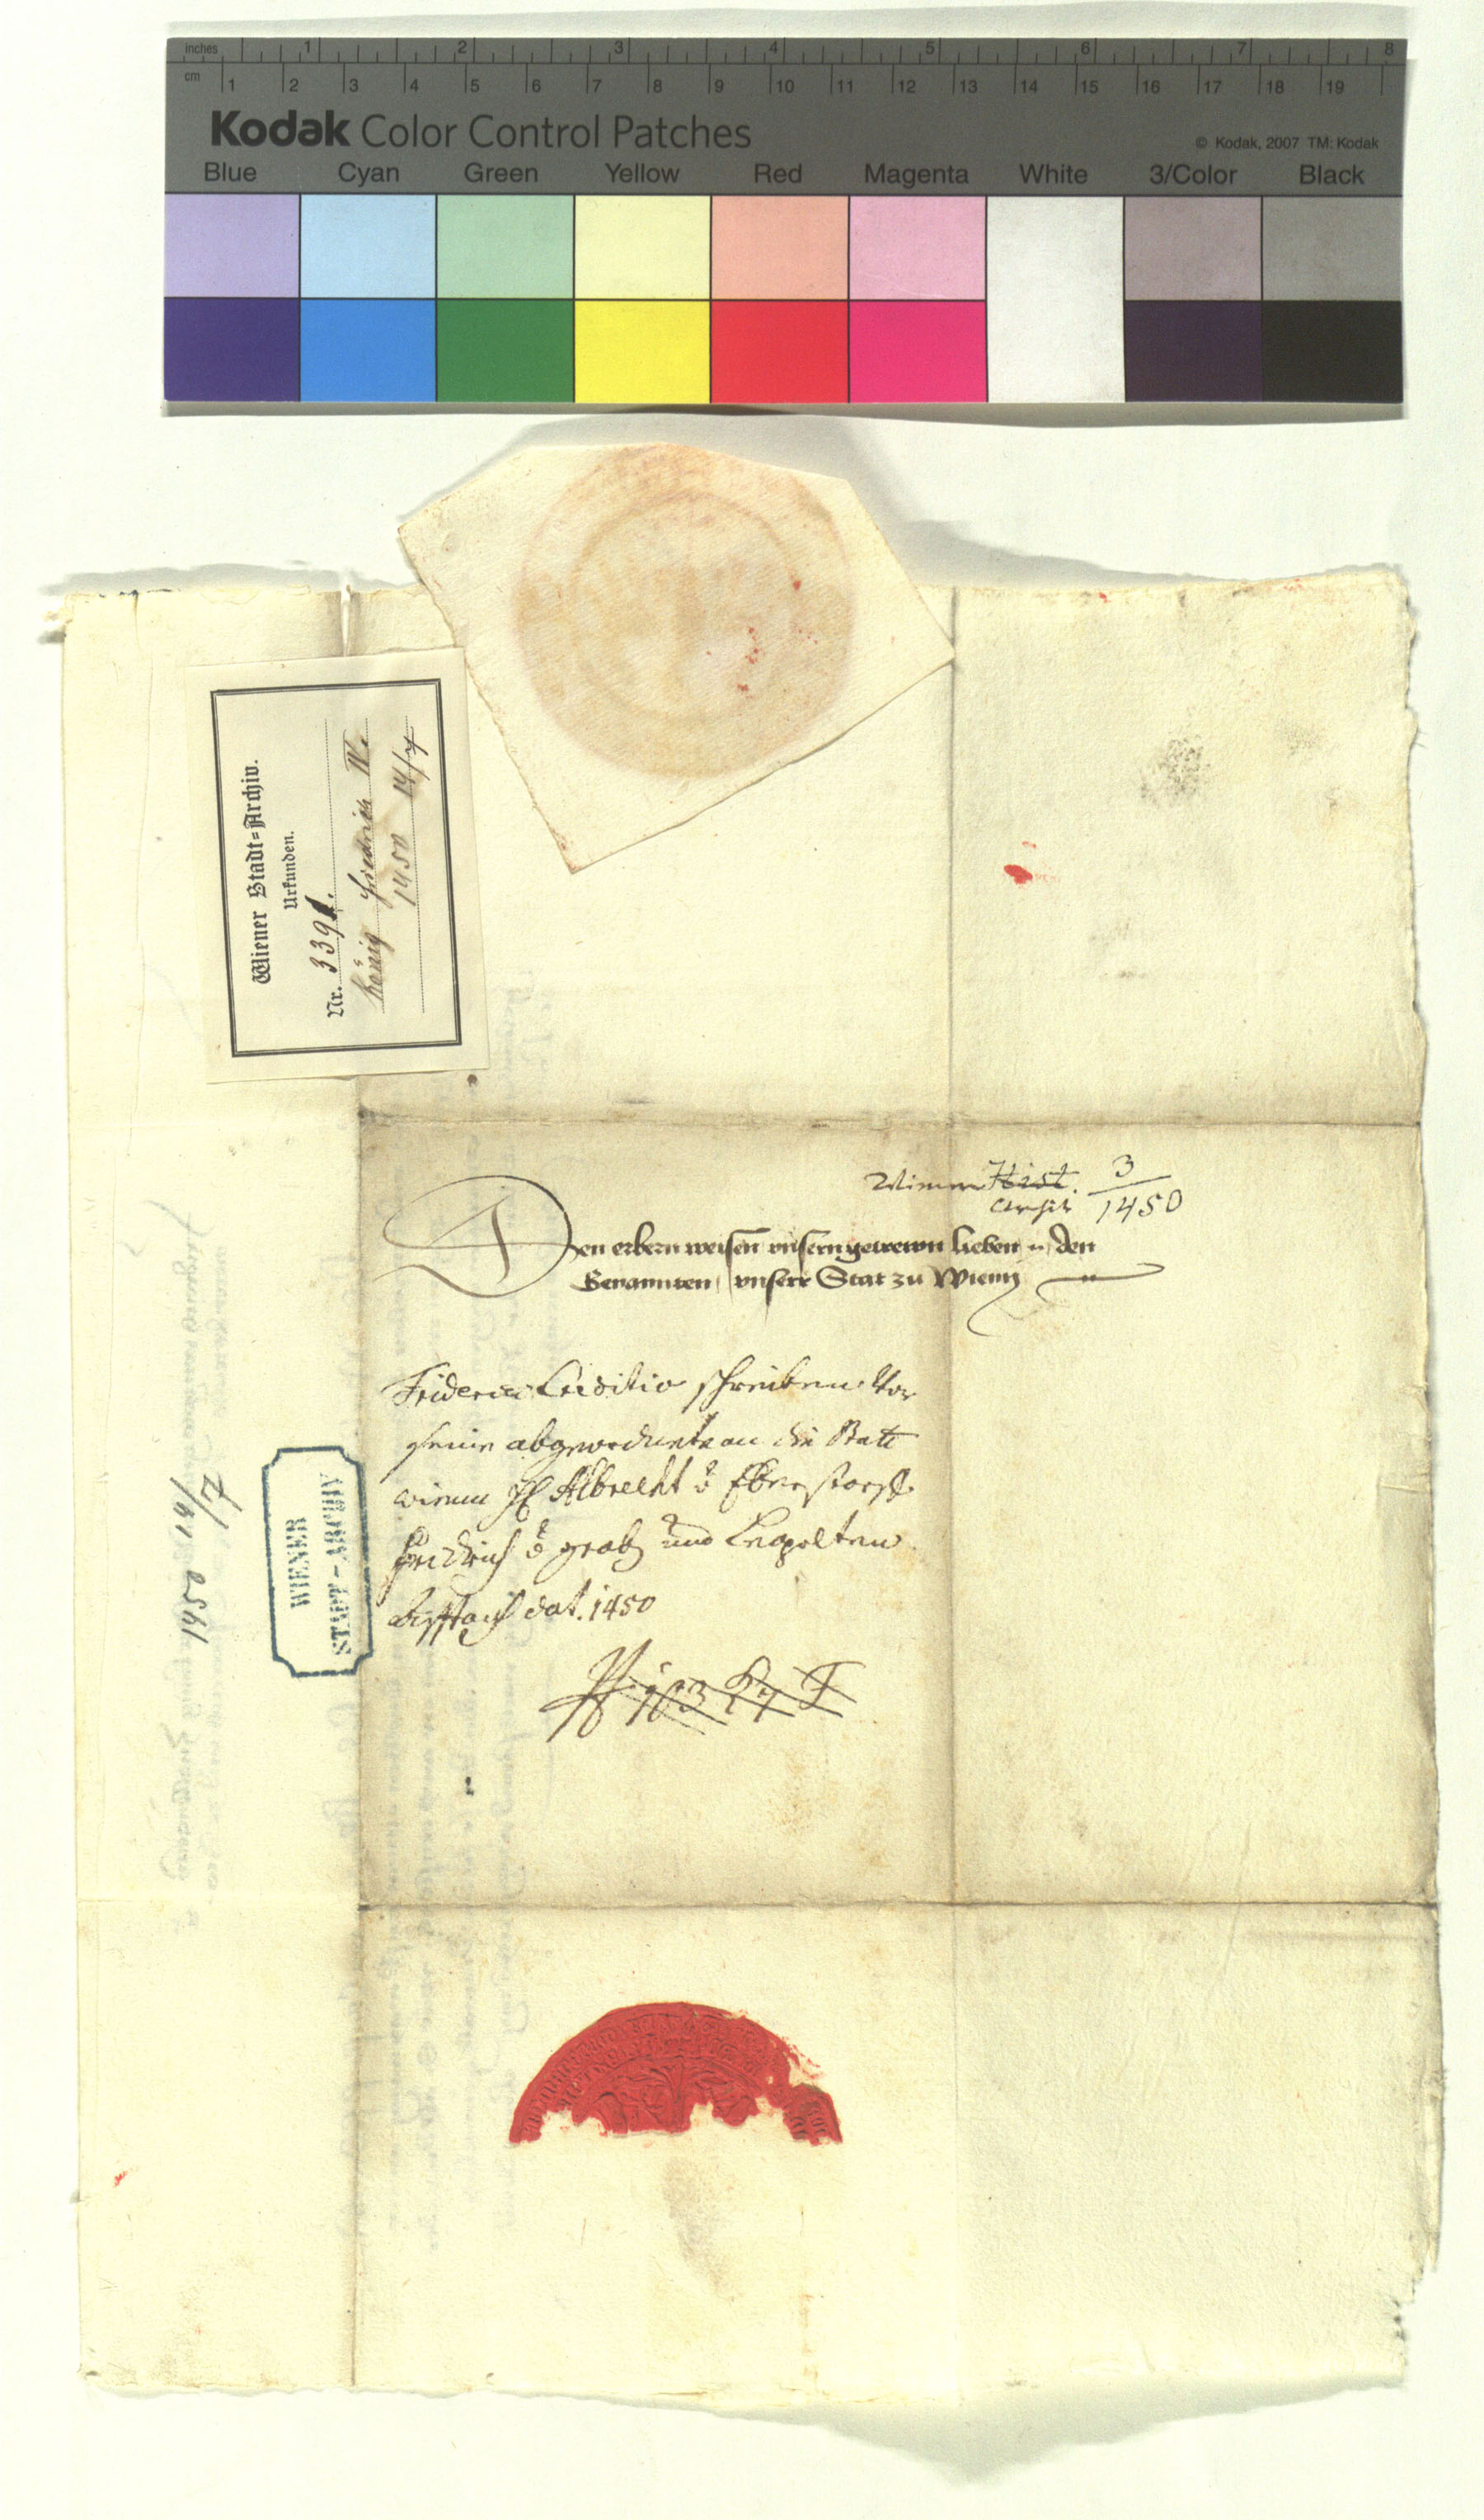 inches 1 2 3 4 5 6 7 8
cm 1 2 3 4 5 6 7 8 9 10 11 12 13 14 15 16 17 18 19
Kodak Color Control Patches
© Kodak, 2007 TM: Kodak
Blue Cyan Green Yellow Red Magenta White 3/Color Black
Wiener Stadt-Archiv.
Urkunden.
Nr. 3391.
König Friedrich IV.
1450 14/7
Hist. 3
1450
Den erbern weisen vnsern getrewn lieben den
Genannten vnserr Stat zu Wienn
schreiben vor
seine abgeordnete an die Statt
wienn H Albrecht v Eberstorff
Fridrich v grab und Leopolten
dat. 1450
1450 14/7
WIENER
STADT-ARCHIV